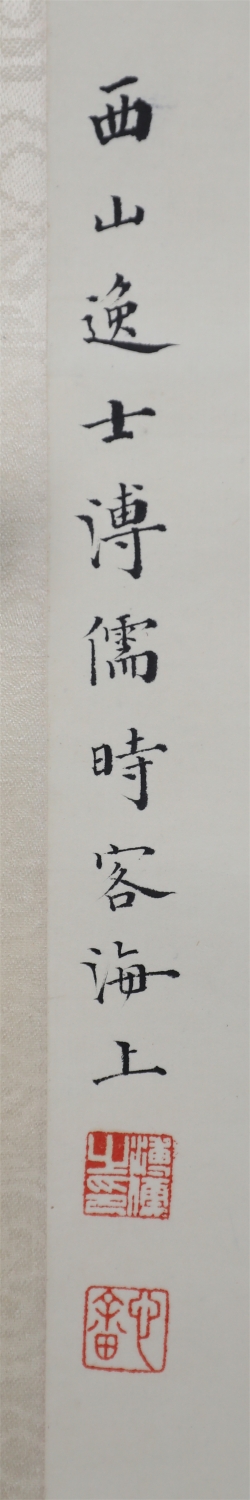 西山逸士溥儒時客海上
溥儒之印
心畬